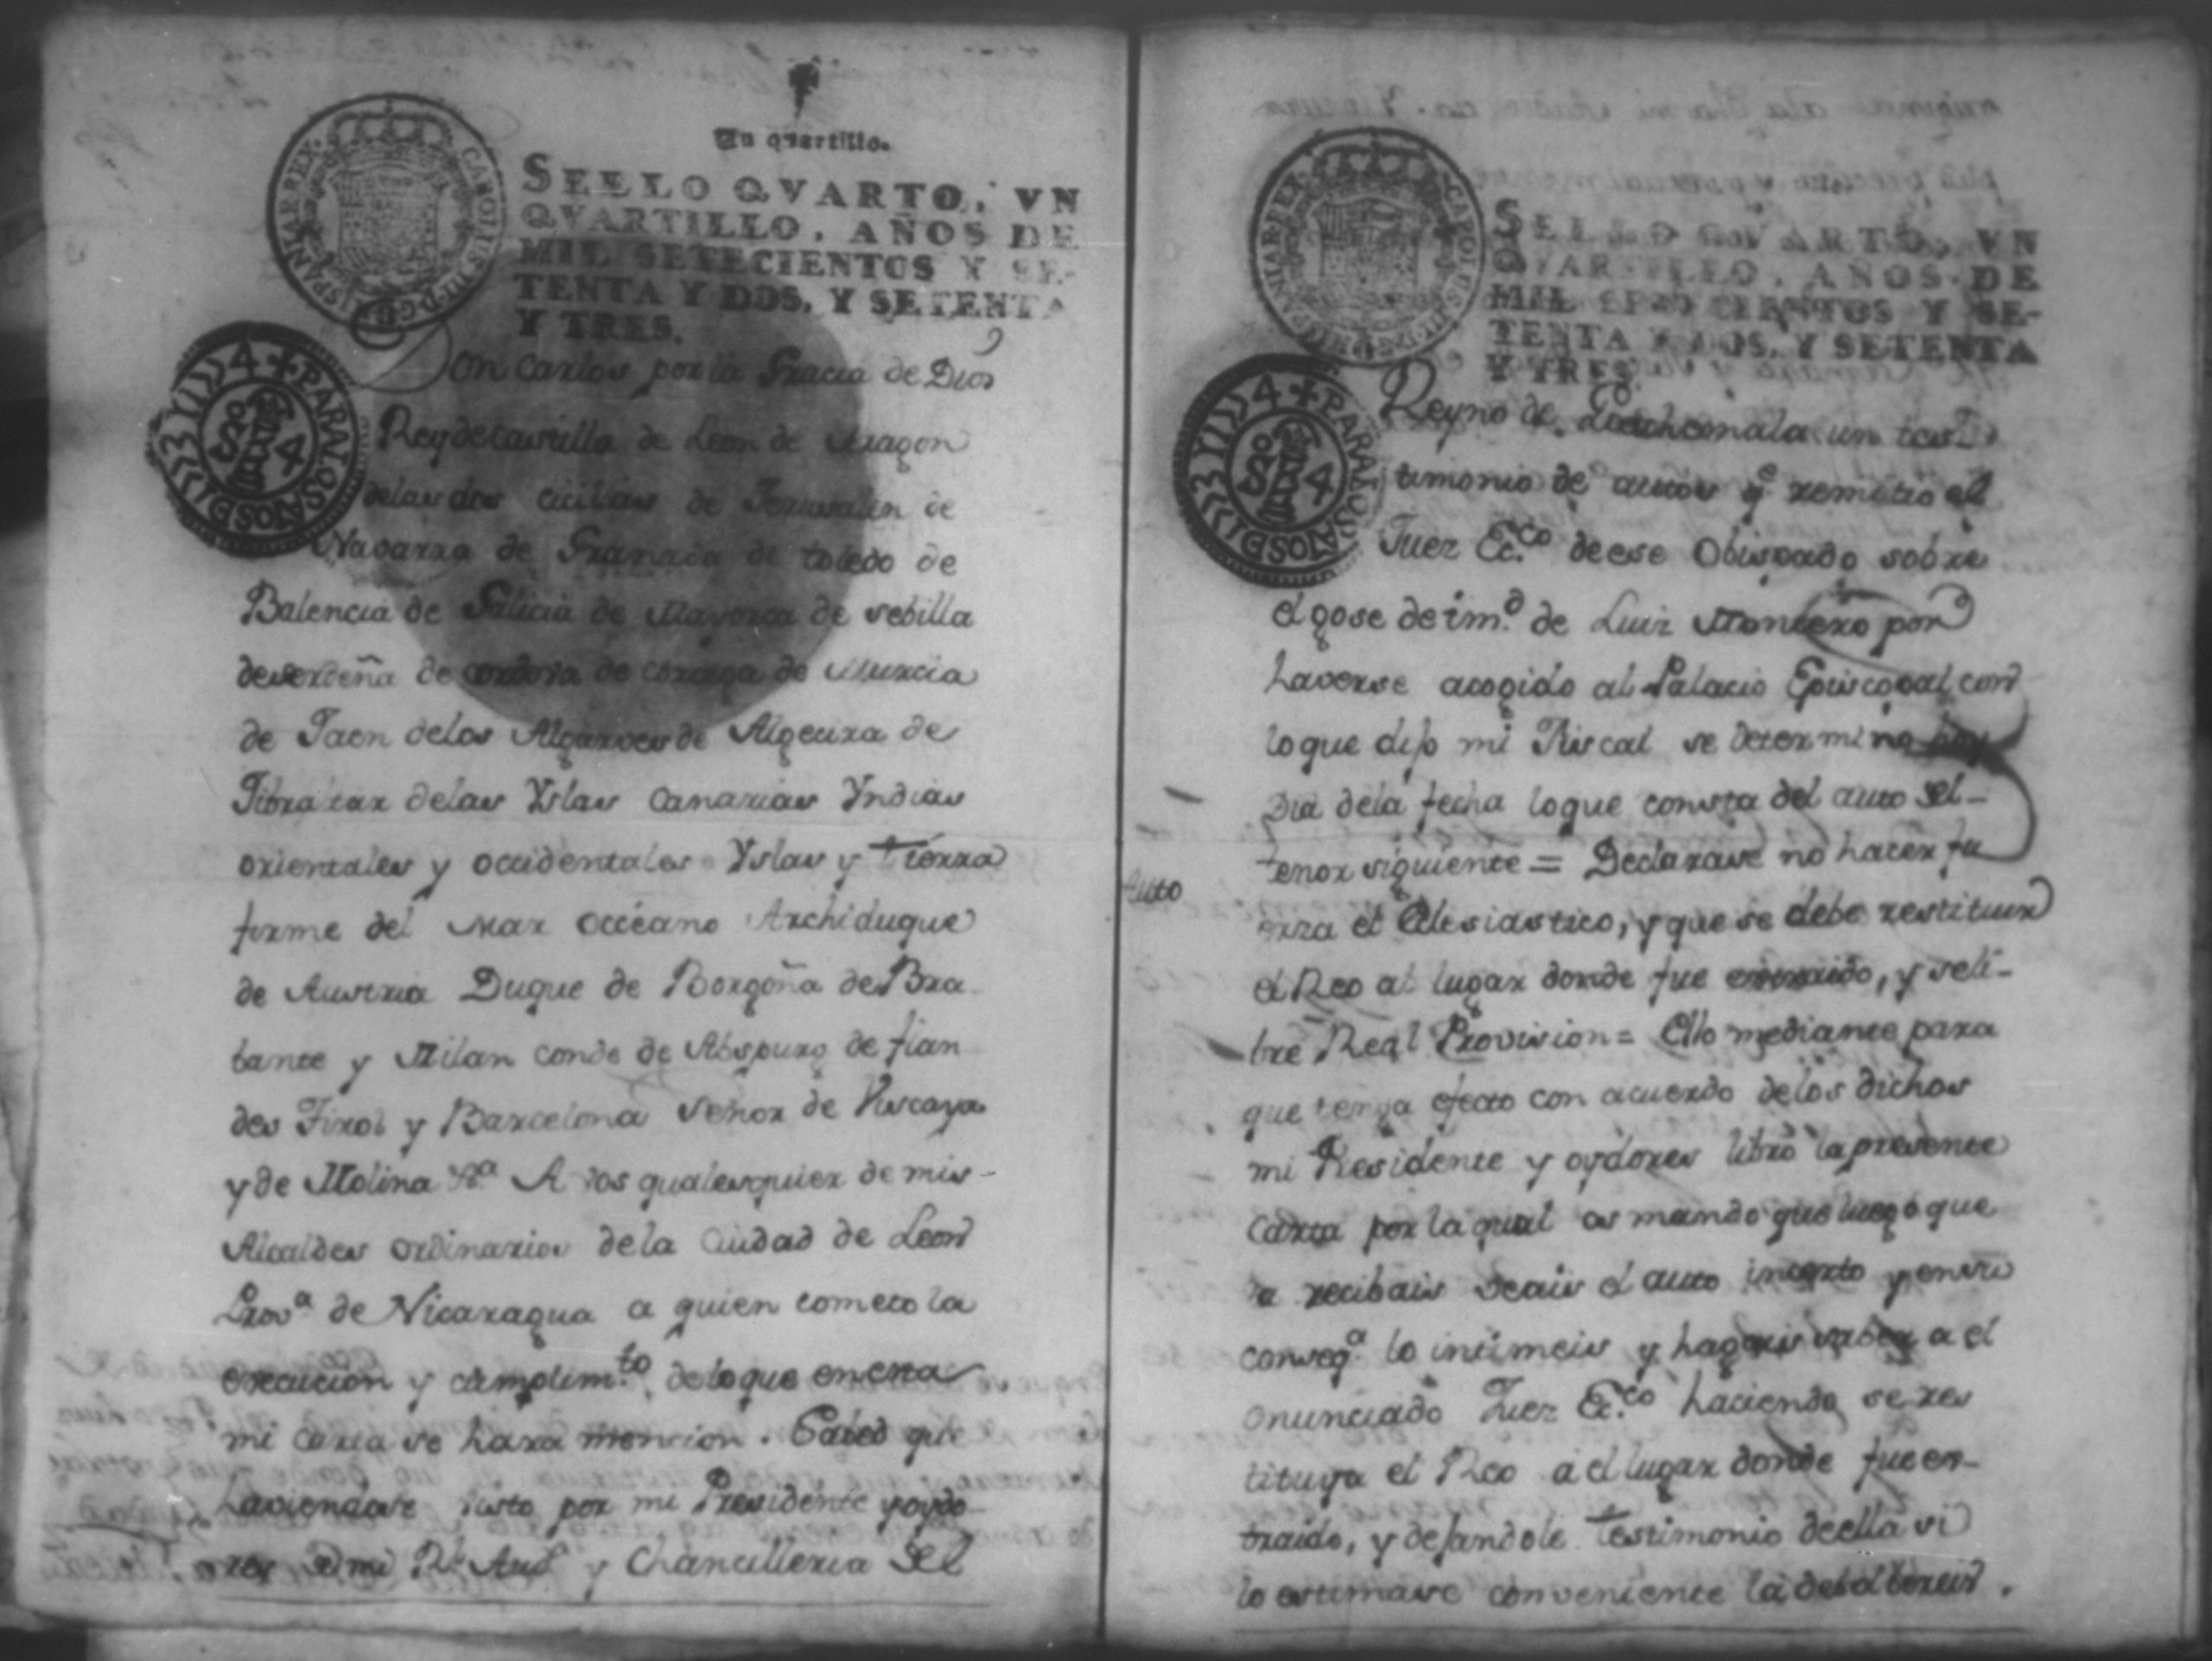 Un quartillo.
SELLO QVARTO, VN
QVARTILLO, AÑOS DE
MIL SETECIENTOS Y SE-
TENTA Y DOS, Y SETENTA
Y TRES.
CAROLUS III D G HISPANIAR REX
PARA LOS AÑOS DI
Don Carlos por la Gracia de Dios
Rey de Castilla de Leon de Aragon
delas dos cicilias de Jerusalen de
Navarra de Granada de toledo de
Balencia de Galicia de Mayorca de sebilla
deserdeña de cordova de corcega de Murcia
de Jaen delos Algarves de Algecira de
Jibraltar delas Yslas Canarias Yndias
orientales y occidentales Yslas y tierra
firme del mar occeano Archiduque
de Austria Duque de Borgoña de Bra
bante y Milan conde de Abspurg de flan
des Tirol y Barcelona Señor de Viscaya
y de Molina &a. A vos qualesquier de mis-
Alcaldes ordinarios dela Ciudad de Leon
Prova. de Nicaragua a quien cometo la
execucion y cumplimto. delo que en esta
mi carta se hara mencion. Sabed que
haviendose visto por mi Presidente y oydo
ores de mi Rl. Auda. y Chancilleria del
SELLO QVARTO, VN
QVARTILLO, AÑOS DE
MIL SETECIENTOS Y SE-
TENTA Y DOS, Y SETENTA
Y TRES.
CAROLUS III D G HISPANIAR REX
PARA LOS AÑOS DI
Reyno de Goathemala un tes
timonio de autos qe. remitio el
Juez Ecco. de ese Obispado sobre
el gose de imd. de Luiz Montero por
haverse acogido al Palacio Episcopal con
lo que dijo mi Fiscal se determino hoy
Dia dela fecha lo que consta del auto del-
Auto
tenor siguiente = Declarase no hacer fu
erza el eclesiastico, y que se debe restituir
el Reo al lugar donde fue extraido, y se li-
bre Real Provision = Ello mediante para
que tenga efecto con acuerdo delos dichos
mi Presidente y oydores libro la presente
carta por la qual os mando que luego que
la recibais veais el auto inserto y en su
conseqa. lo intimeis y hagais saber a el
enunciado Juez Ecco. haciendo se res
tituya el Reo a el lugar donde fue ex-
traido, y dejandole testimonio de ella si
lo estimase conveniente la debolbereis.